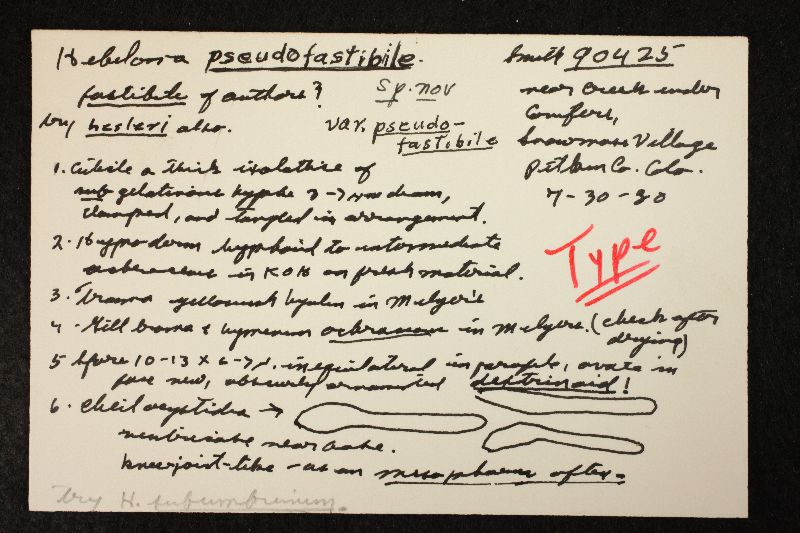 Hebeloma pseudofastibile.
Smith 90425
fastibile of authors?
sp. nov
near creek under
Conifers,
try hesleri also.
var. pseudo-
fastibile
Snowmass Village
Pitkin Co. Colo.
7-30-80
1. Cuticle a thick ixolattice of
subgelatinous hyphae diam,
clamped, and tangled in arrangement.
Type
2. Hypoderm hyphoid to intermediate
in KOH on fresh material.
3. Trama yellowish hyalin in Melzer's
4. Gill trama & hymenium ochraceous in Melzers. (check after
drying)
5 Spore 10-13 x 6-7 µ. inequilateral in profile, ovate in
face view, obscurely ornamented dextrinoid!
6. Cheilocystidia →
ventricose near base.
knee joint-like - as in mesophaeum often.
try H. subumbrinum.